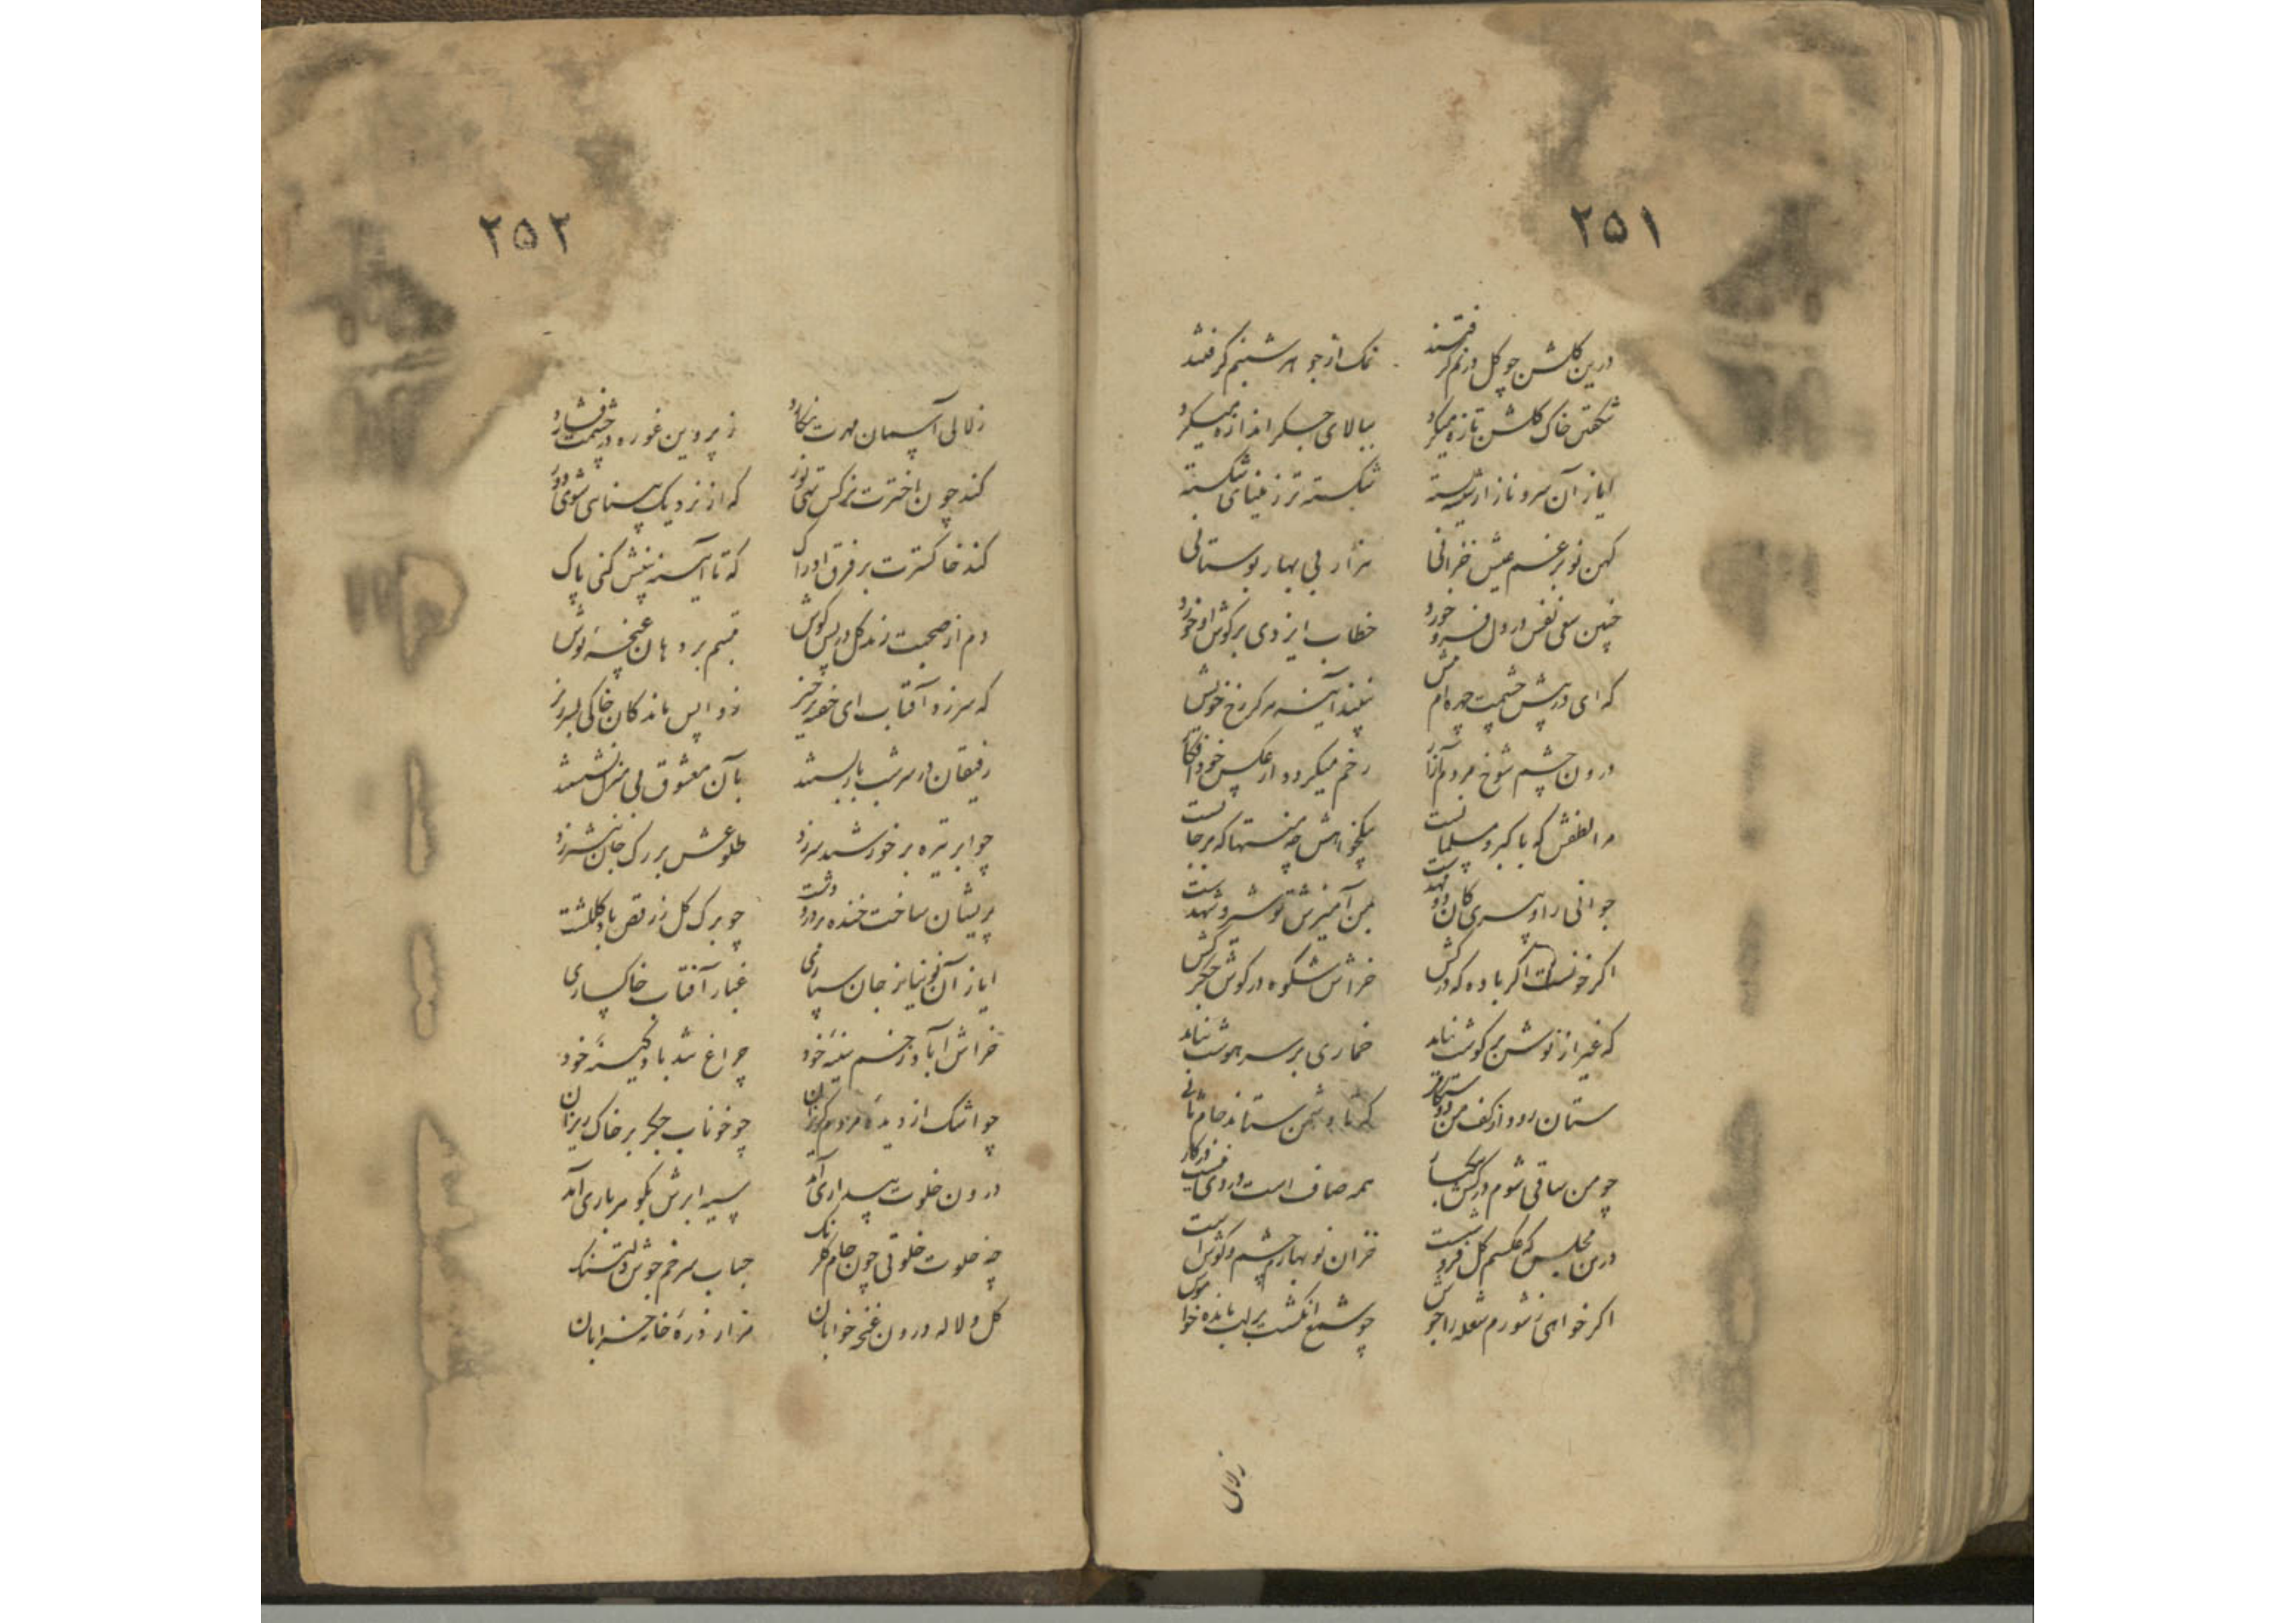 ۲۵۱
درین گلشن چو گل در نم گرفتند نمک از جوهر شبنم گرفتند
شکفتن خاک گلشن تازه میکرد ببالای جگر اندازه میکرد
ایاز آن سرو ناز ارشته شکسته تر ز مینای شکسته
کهن نوبر غم عیش خزانی هزار بی بهار بوستانی
چنین سفی نفس در دل فرو خورد خطاب ایزدی بر گوش او خورد
که ای در پیش چشمت چهره ام نبیند آینه هرکز رخ خویش
درون چشم شوخ مردم آزار رخم میکردد از عکس خود افکار
مرا لطفش که با کبر و مسلمانست نیکخواهش چه منتها که برجانست
جوانی را و پیری کان دو مهد است بمن آمیزش نو شیر و شهد است
اکر خونست اکر باده که درکش خراش شکوه در کوش جکر کش
که غیر از نوش بر کوشت نیاید خماری بر سر هوشت نیاید
ستان رود از کف من دوستکانی که تا دشمن ستاند جام ثانی
چو من ساقی شوم درکش بیکبار همه صاف است دردی نیست در کار
درین مجلس که عکسم کل فروش است خزان نو بهار چشم و گوش است
اکر خواهی ز شورم شعله را جوش چو شمع انکشت بر لب مانده خاموش
زلالی
۲۵۲
زلالی آسمان مهرت نکارد ز پروین غوره در چشمت فشارد
کند چون اخترت نرکس تهی نور که از نزدیک بینای شوی دور
کند خاکسترت بر فرق ادراک که تا آینه بینش کنی پاک
دم از صحبت زند کل در پس کوش تبسم بر دهان غنچه نوش
که سر زد آفتاب ای خفته برخیز ز واپس ماندکان خاکی بسر ریز
رفیقان در سر شب بار بستند بآن معشوق بی منزل نشستند
چو ابر تیره بر خورشید سر زد طلوعش بر رک جان نیشتر زد
پریشان ساخت خنده بر در و دشت چو برک کل ز رقص باد گلگشت
ایاز آن نو نیاز جان سپاری غبار آفتاب خاکساری
خراش آباد زخم سینه خود چراغ تند باد کینه خود
چو اشک از دیده مردم گریزان چو خوناب جکر بر خاک ریزان
درون خلوت بیداری آمد سیه ابرش بگوهر باری آمد
چه خلوت خلوتی چون جام گلرنک حباب سر خم جوش دل تنک
کل و لاله درون غنچه خوابان هزار ذره خانه خرابان